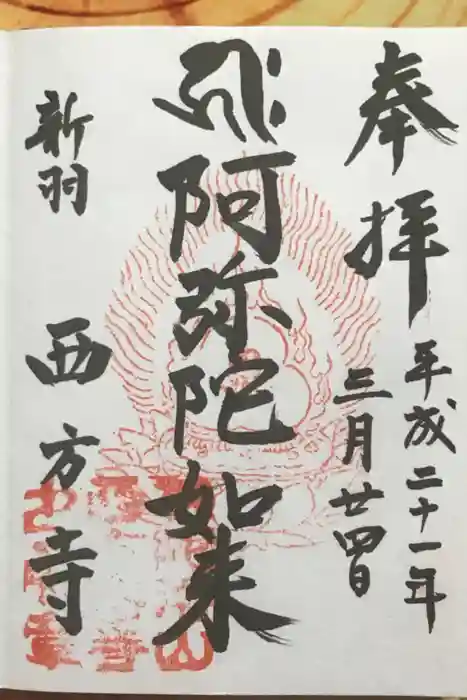 奉拝
平成二十一年
三月廿四日
阿弥陀如来
新羽
西方寺